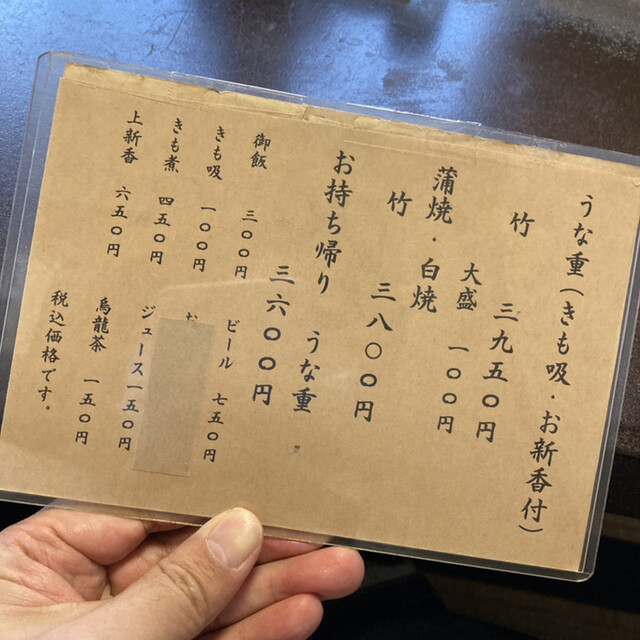 うな重(きも吸・お新香付)
竹 三九五〇円
大盛 一〇〇円
蒲焼・白焼
竹 三八〇〇円
お持ち帰り うな重
三六〇〇円
御飯 三〇〇円
きも吸 一〇〇円
きも煮 四五〇円
上新香 六五〇円
ビール 七五〇円
ジュース一五〇円
烏龍茶 一五〇円
税込価格です。